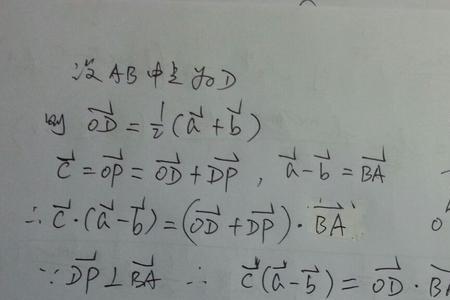 设AB中点为D
则 $\overrightarrow{OD}=\frac{1}{2}(\vec{a}+\vec{b})$
$\vec{c}=\overrightarrow{OP}=\overrightarrow{OD}+\overrightarrow{DP}$ , $\vec{a}-\vec{b}=\overrightarrow{BA}$
∴ $\vec{c}\cdot(\vec{a}-\vec{b})=(\overrightarrow{OD}+\overrightarrow{DP})\cdot\overrightarrow{BA}$
∵ $\overrightarrow{DP}\perp\overrightarrow{BA}$ ∴ $\vec{c}(\vec{a}-\vec{b})=\overrightarrow{OD}\cdot\overrightarrow{BA}$